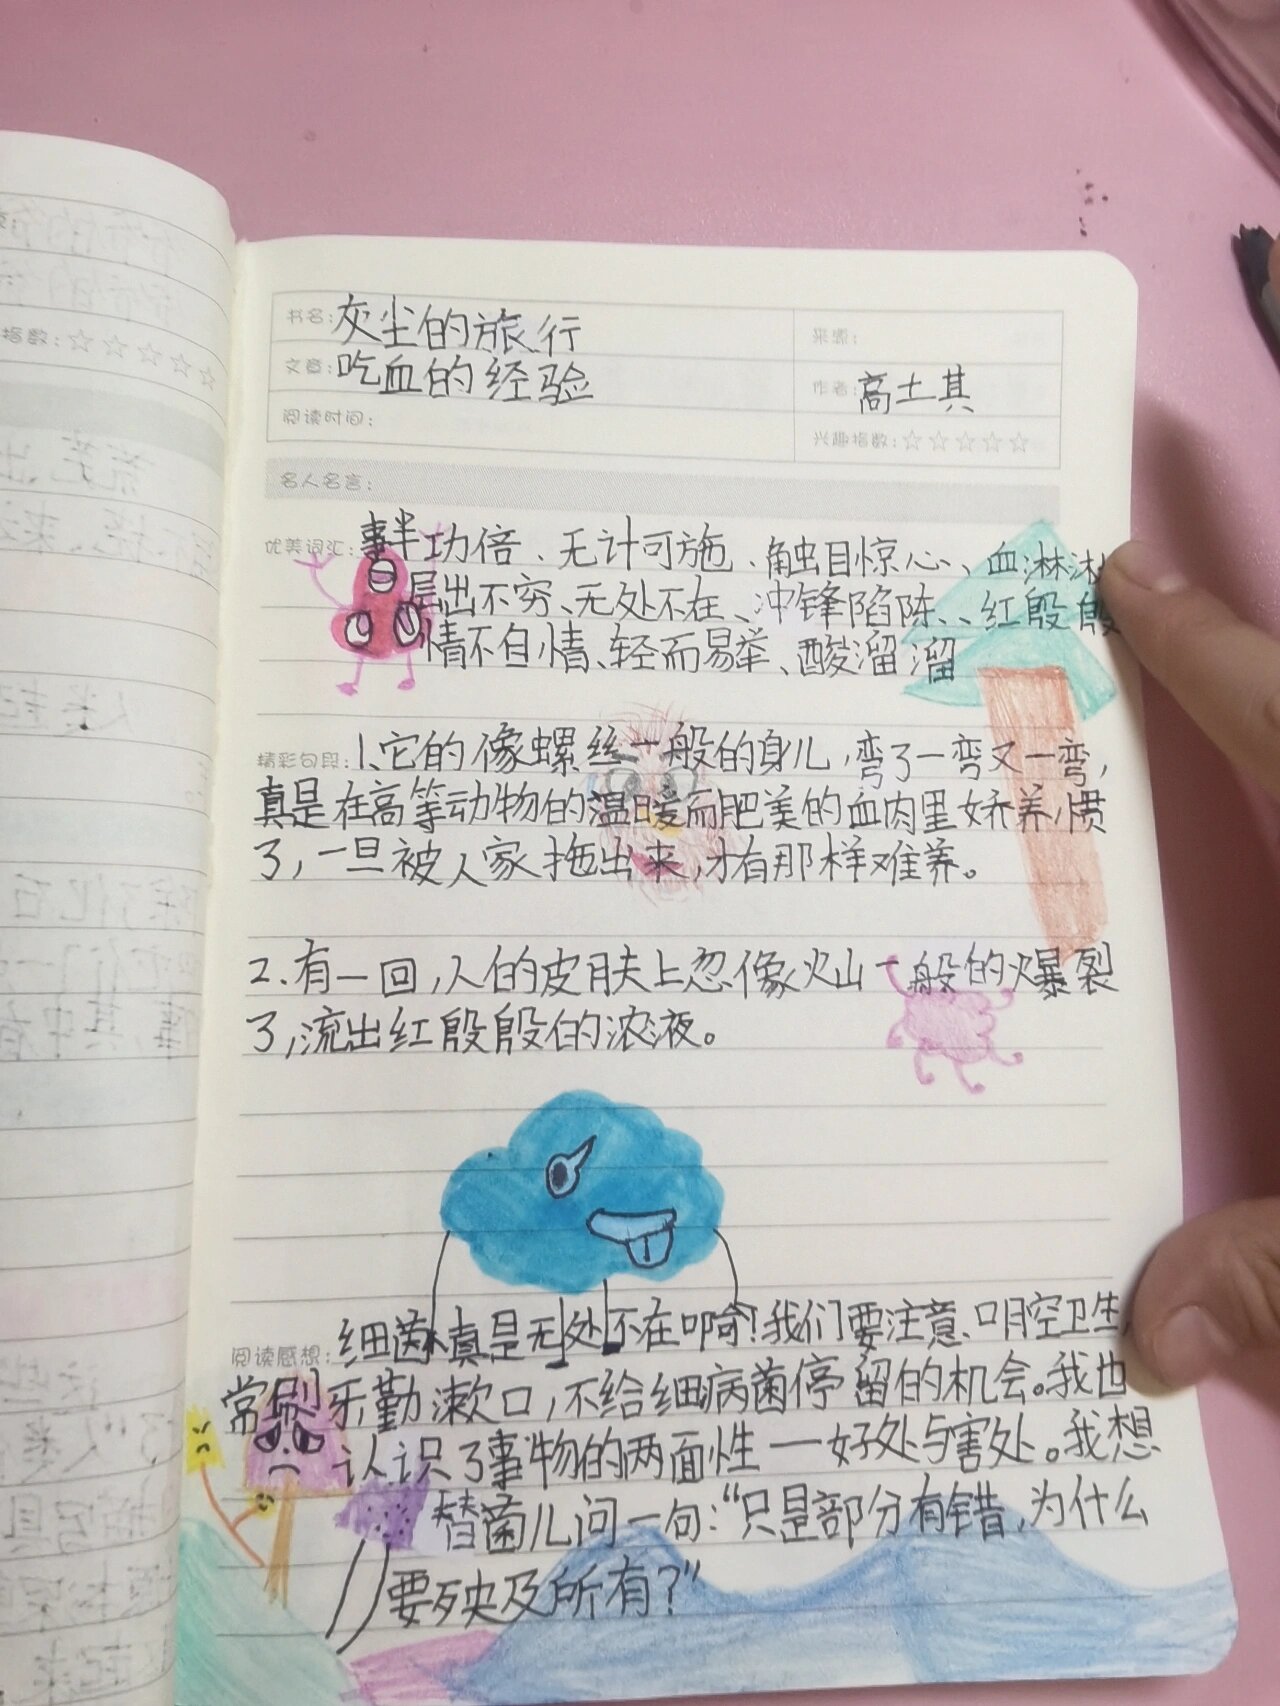 书名: 灰尘的旅行
来源:
文章: 吃血的经验
作者: 高士其
阅读时间:
兴趣指数: ☆☆☆☆☆
名人名言:
优美词汇: 事半功倍、无计可施、触目惊心、血淋淋
层出不穷、无处不在、冲锋陷陈、、红殷殷
情不自情、轻而易举、酸溜溜
精彩句段: 1、它的像螺丝一般的身儿,弯了一弯又一弯,
真是在高等动物的温暖而肥美的血肉里娇养惯
了,一旦被人家拖出来,才有那样难养。
2.有一回,人的皮肤上忽像火山一般的爆裂
了,流出红殷殷的浓液。
阅读感想: 细菌真是无处不在啊!我们要注意口腔卫生,
常刷牙勤漱口,不给细病菌停留的机会。我也
认识了事物的两面性一好处与害处。我想
替菌儿问一句:“只是部分有错,为什么
要殃及所有?”
指数: ☆☆☆☆☆